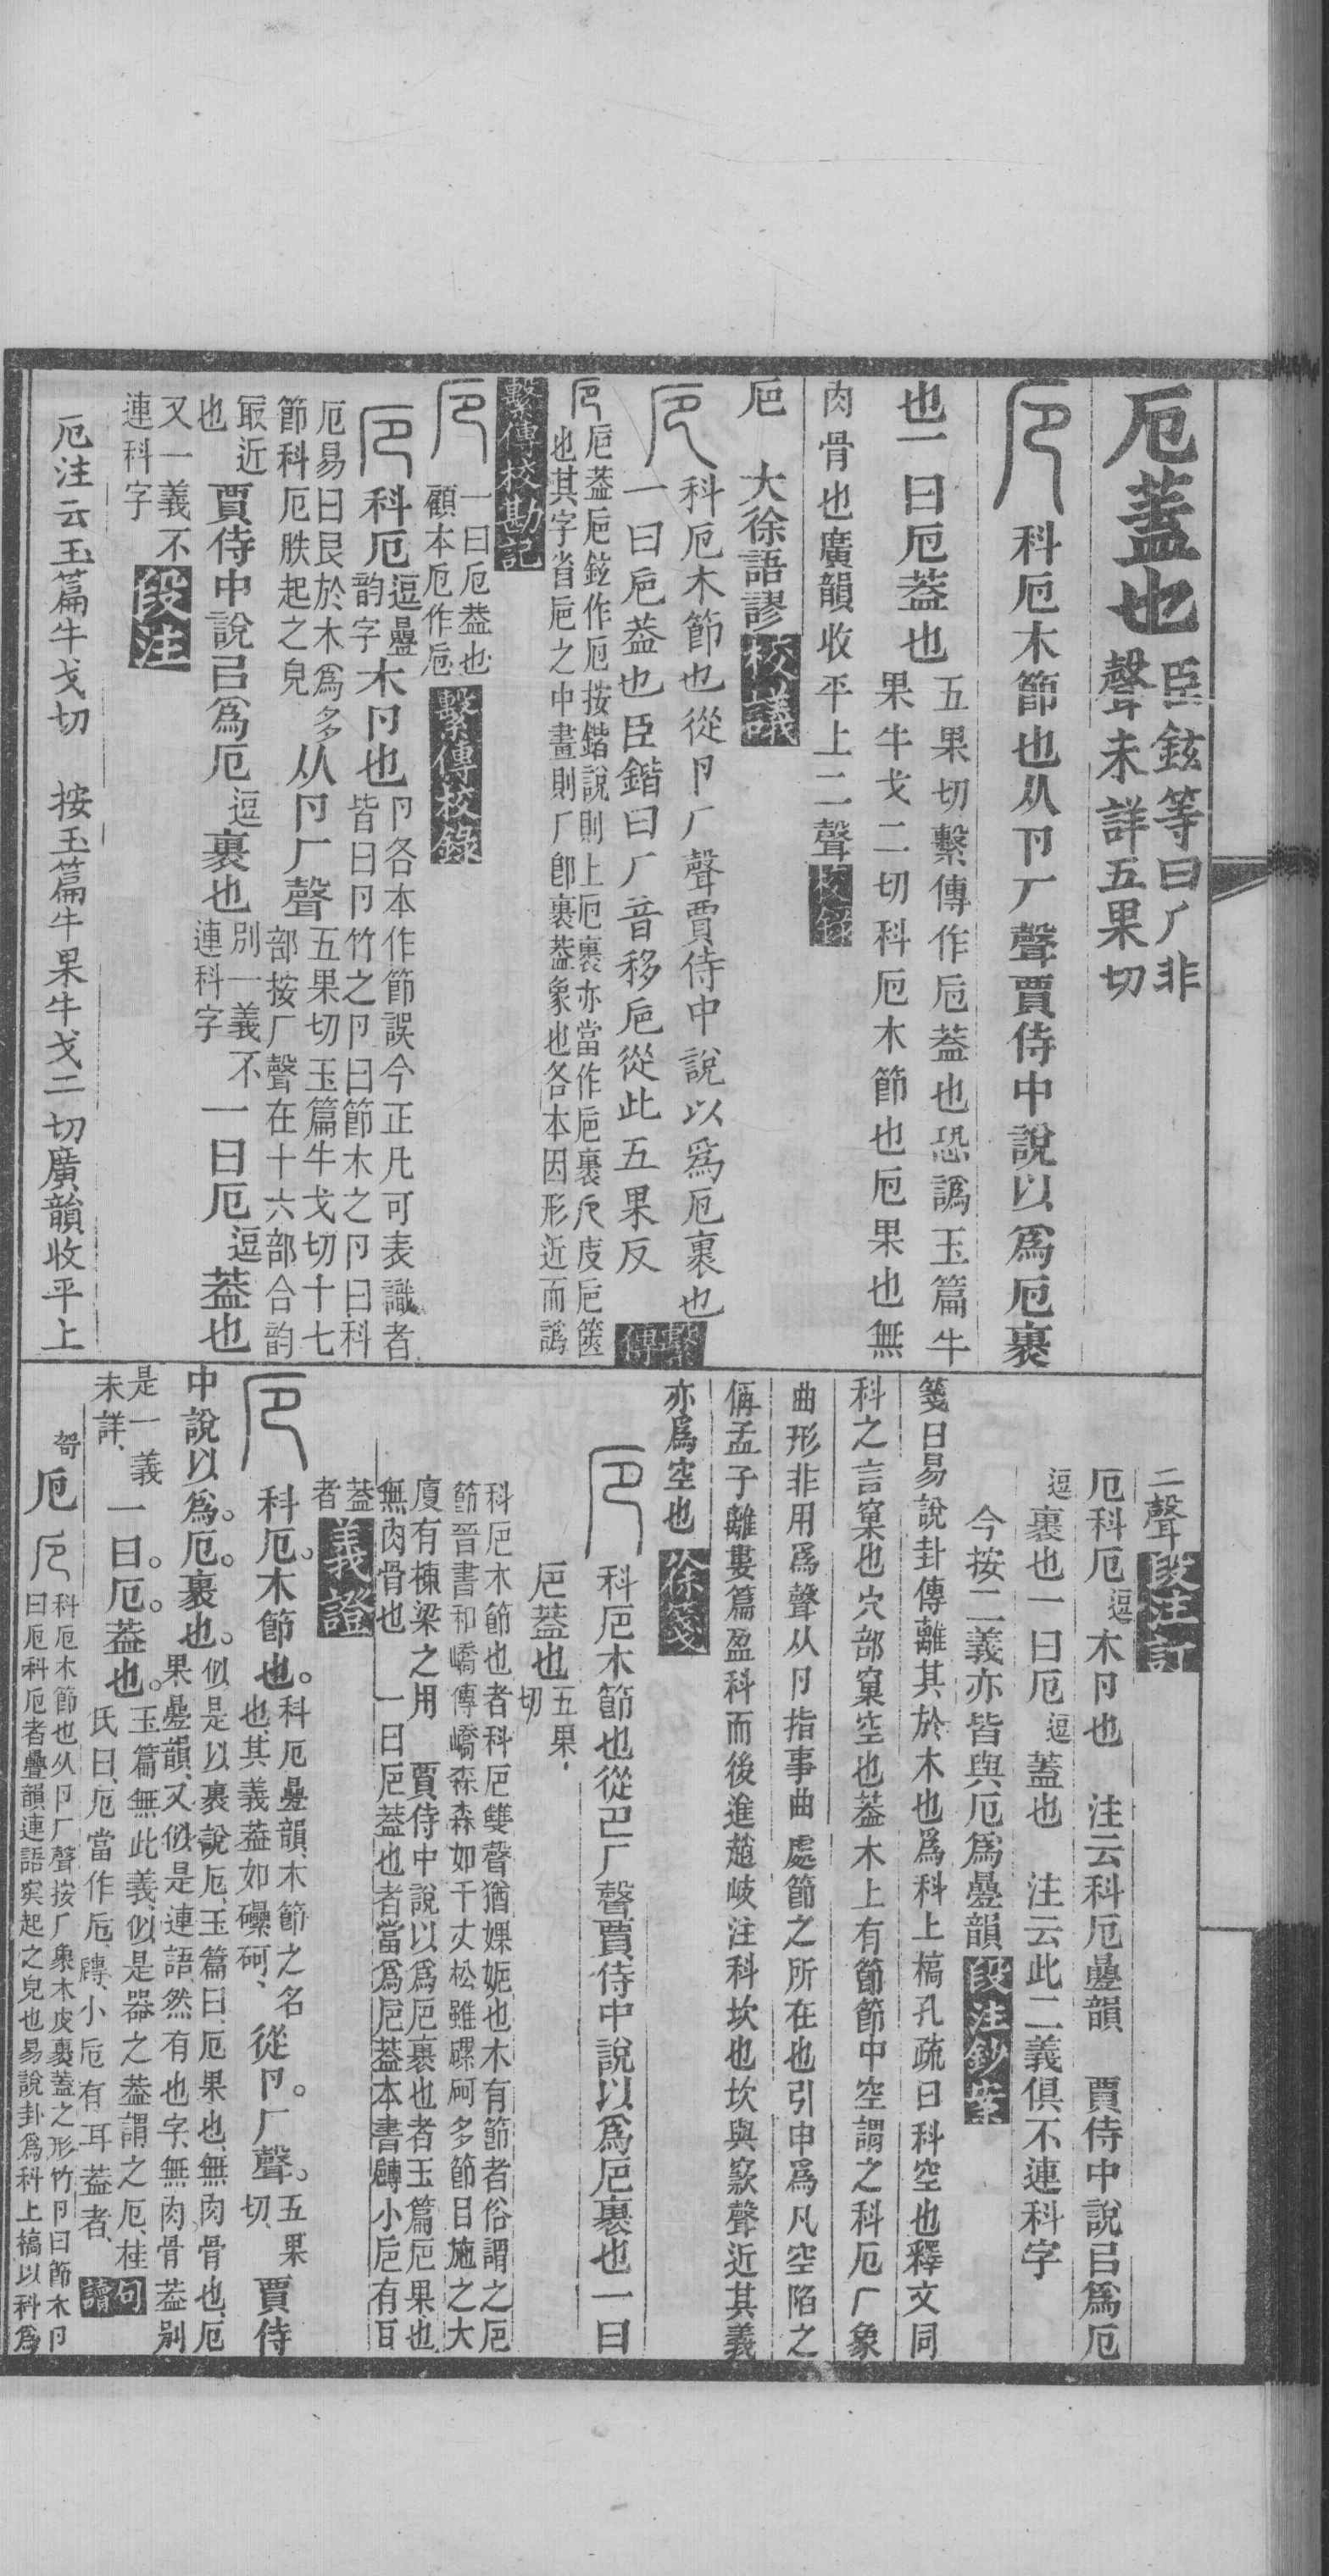 厄蓋也臣鉉等曰厂非
聲未詳五果切
科厄木節也从卪厂聲賈侍中說以爲厄裹
也一曰厄葢也五果切繫傳作卮蓋也恐譌玉篇牛
果牛戈二切科厄木節也厄果也無
肉骨也廣韻收平上二聲校錄
卮 大徐語謬校議
科厄木節也從卪厂聲賈侍中說以爲厄裹也
一曰卮葢也臣鍇曰厂音移卮從此五果反繫傳
卮葢卮鉉作厄按鍇說則上厄裹亦當作卮裹
也其字省卮之中畫則厂卽裹葢象也各本因形近而譌
繫傳校勘記
一曰厄葢也
顧本厄作卮繫傳校錄
科厄逗疊韵字木卪也卪各本作節誤今正凡可表識者
皆曰卪竹之卪曰節木之卪曰科
厄易曰艮於木爲多
節科厄胅起之皃从卪厂聲五果切玉篇牛戈切十七
部按厂聲在十六部合韵
冣近賈侍中說㠯爲厄逗裹也別一義不連科字一曰厄逗葢也
也又一義不
連科字段注
厄注云玉篇牛戈切 按玉篇牛果牛戈二切廣韻收平上
二聲段注訂
厄科厄逗木卪也 注云科厄疊韻 賈侍中說㠯爲厄
逗裹也一曰厄逗蓋也 注云此二義俱不連科字
今按二義亦皆與厄爲疊韻段注鈔案
箋曰易說卦傳離其於木也爲科上槁孔疏曰科空也釋文同
科之言窠也穴部窠空也葢木上有節節中空謂之科厄厂象
曲形非用爲聲从卪指事曲處節之所在也引申爲凡空陷之
偁孟子離婁篇盈科而後進趙岐注科坎也坎與窾聲近其義
亦爲空也徐箋
科厄木節也從卪厂聲賈侍中說以爲厄裹也一曰
厄蓋也五果切
科厄木節也者科厄雙聲猶婐婉也木有節者俗謂之厄
節晉書和嶠傳嶠森森如千丈松雖磥砢多節目施之大
廈有棟梁之用 賈侍中說以爲厄裹也者玉篇厄果也
無肉骨也 一曰厄葢也者當爲卮葢本書𨟠小卮有耳
葢者義證
科厄。木節也。科厄疊韻、木節之名也、其義葢如礧砢、從卪。厂聲。五果切、賈侍
中說以爲。厄。裹也。似是以裹說厄、玉篇曰、厄果也、無肉骨也、厄
果疊韻、又似是連語、然有也字、無肉骨葢別
是一義未詳、一曰。厄。葢也。玉篇無此義、似是器之葢謂之厄、桂
氏曰、厄當作卮、𨟠、小卮有耳蓋者、句讀
厄 科厄木節也从卪厂聲按厂象木皮裹蓋之形竹卪曰節木卪
曰厄科厄者疊韻連語突起之皃也易說卦爲科上槁以科爲